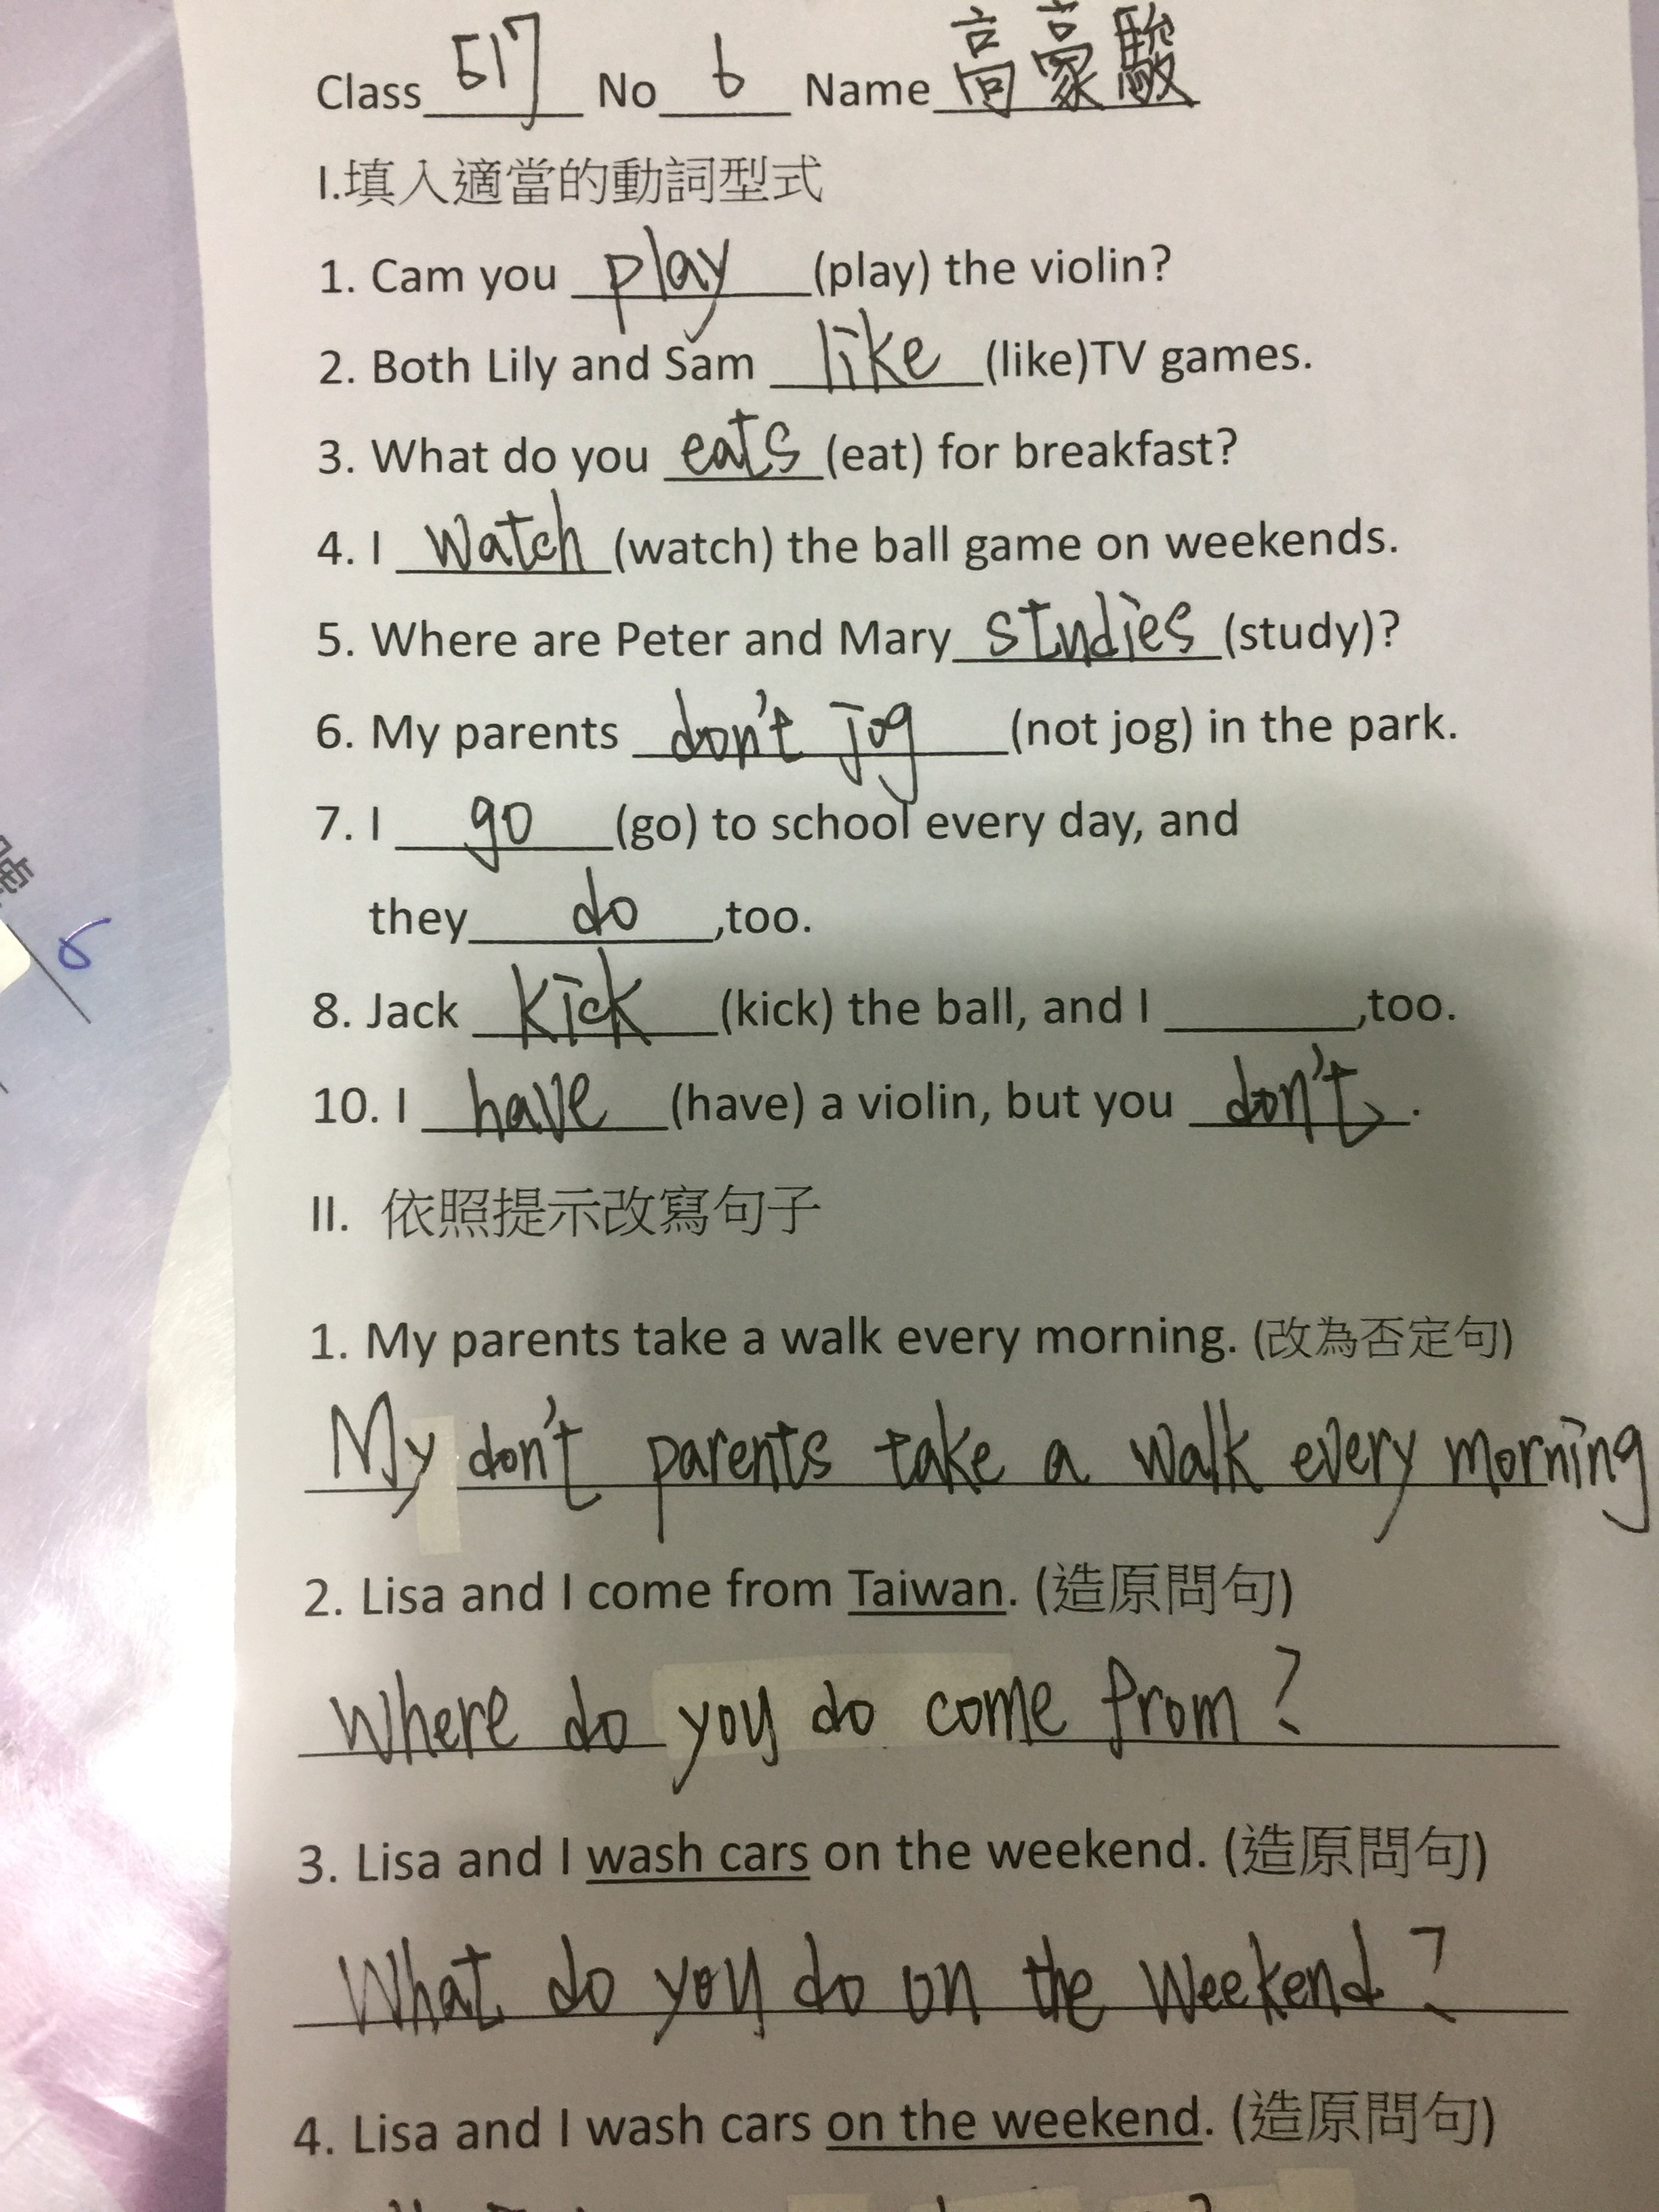 Class 517 No 6 Name 高豪駿
I.填入適當的動詞型式
1. Cam you play (play) the violin?
2. Both Lily and Sam like (like)TV games.
3. What do you eats (eat) for breakfast?
4. I watch (watch) the ball game on weekends.
5. Where are Peter and Mary studies (study)?
6. My parents don't jog (not jog) in the park.
7. I go (go) to school every day, and
they do ,too.
8. Jack kick (kick) the ball, and I ______,too.
10. I have (have) a violin, but you don't .
II. 依照提示改寫句子
1. My parents take a walk every morning. (改為否定句)
My don't parents take a walk every morning
2. Lisa and I come from Taiwan. (造原問句)
Where do you do come from?
3. Lisa and I wash cars on the weekend. (造原問句)
What do you do on the weekend?
4. Lisa and I wash cars on the weekend. (造原問句)
6